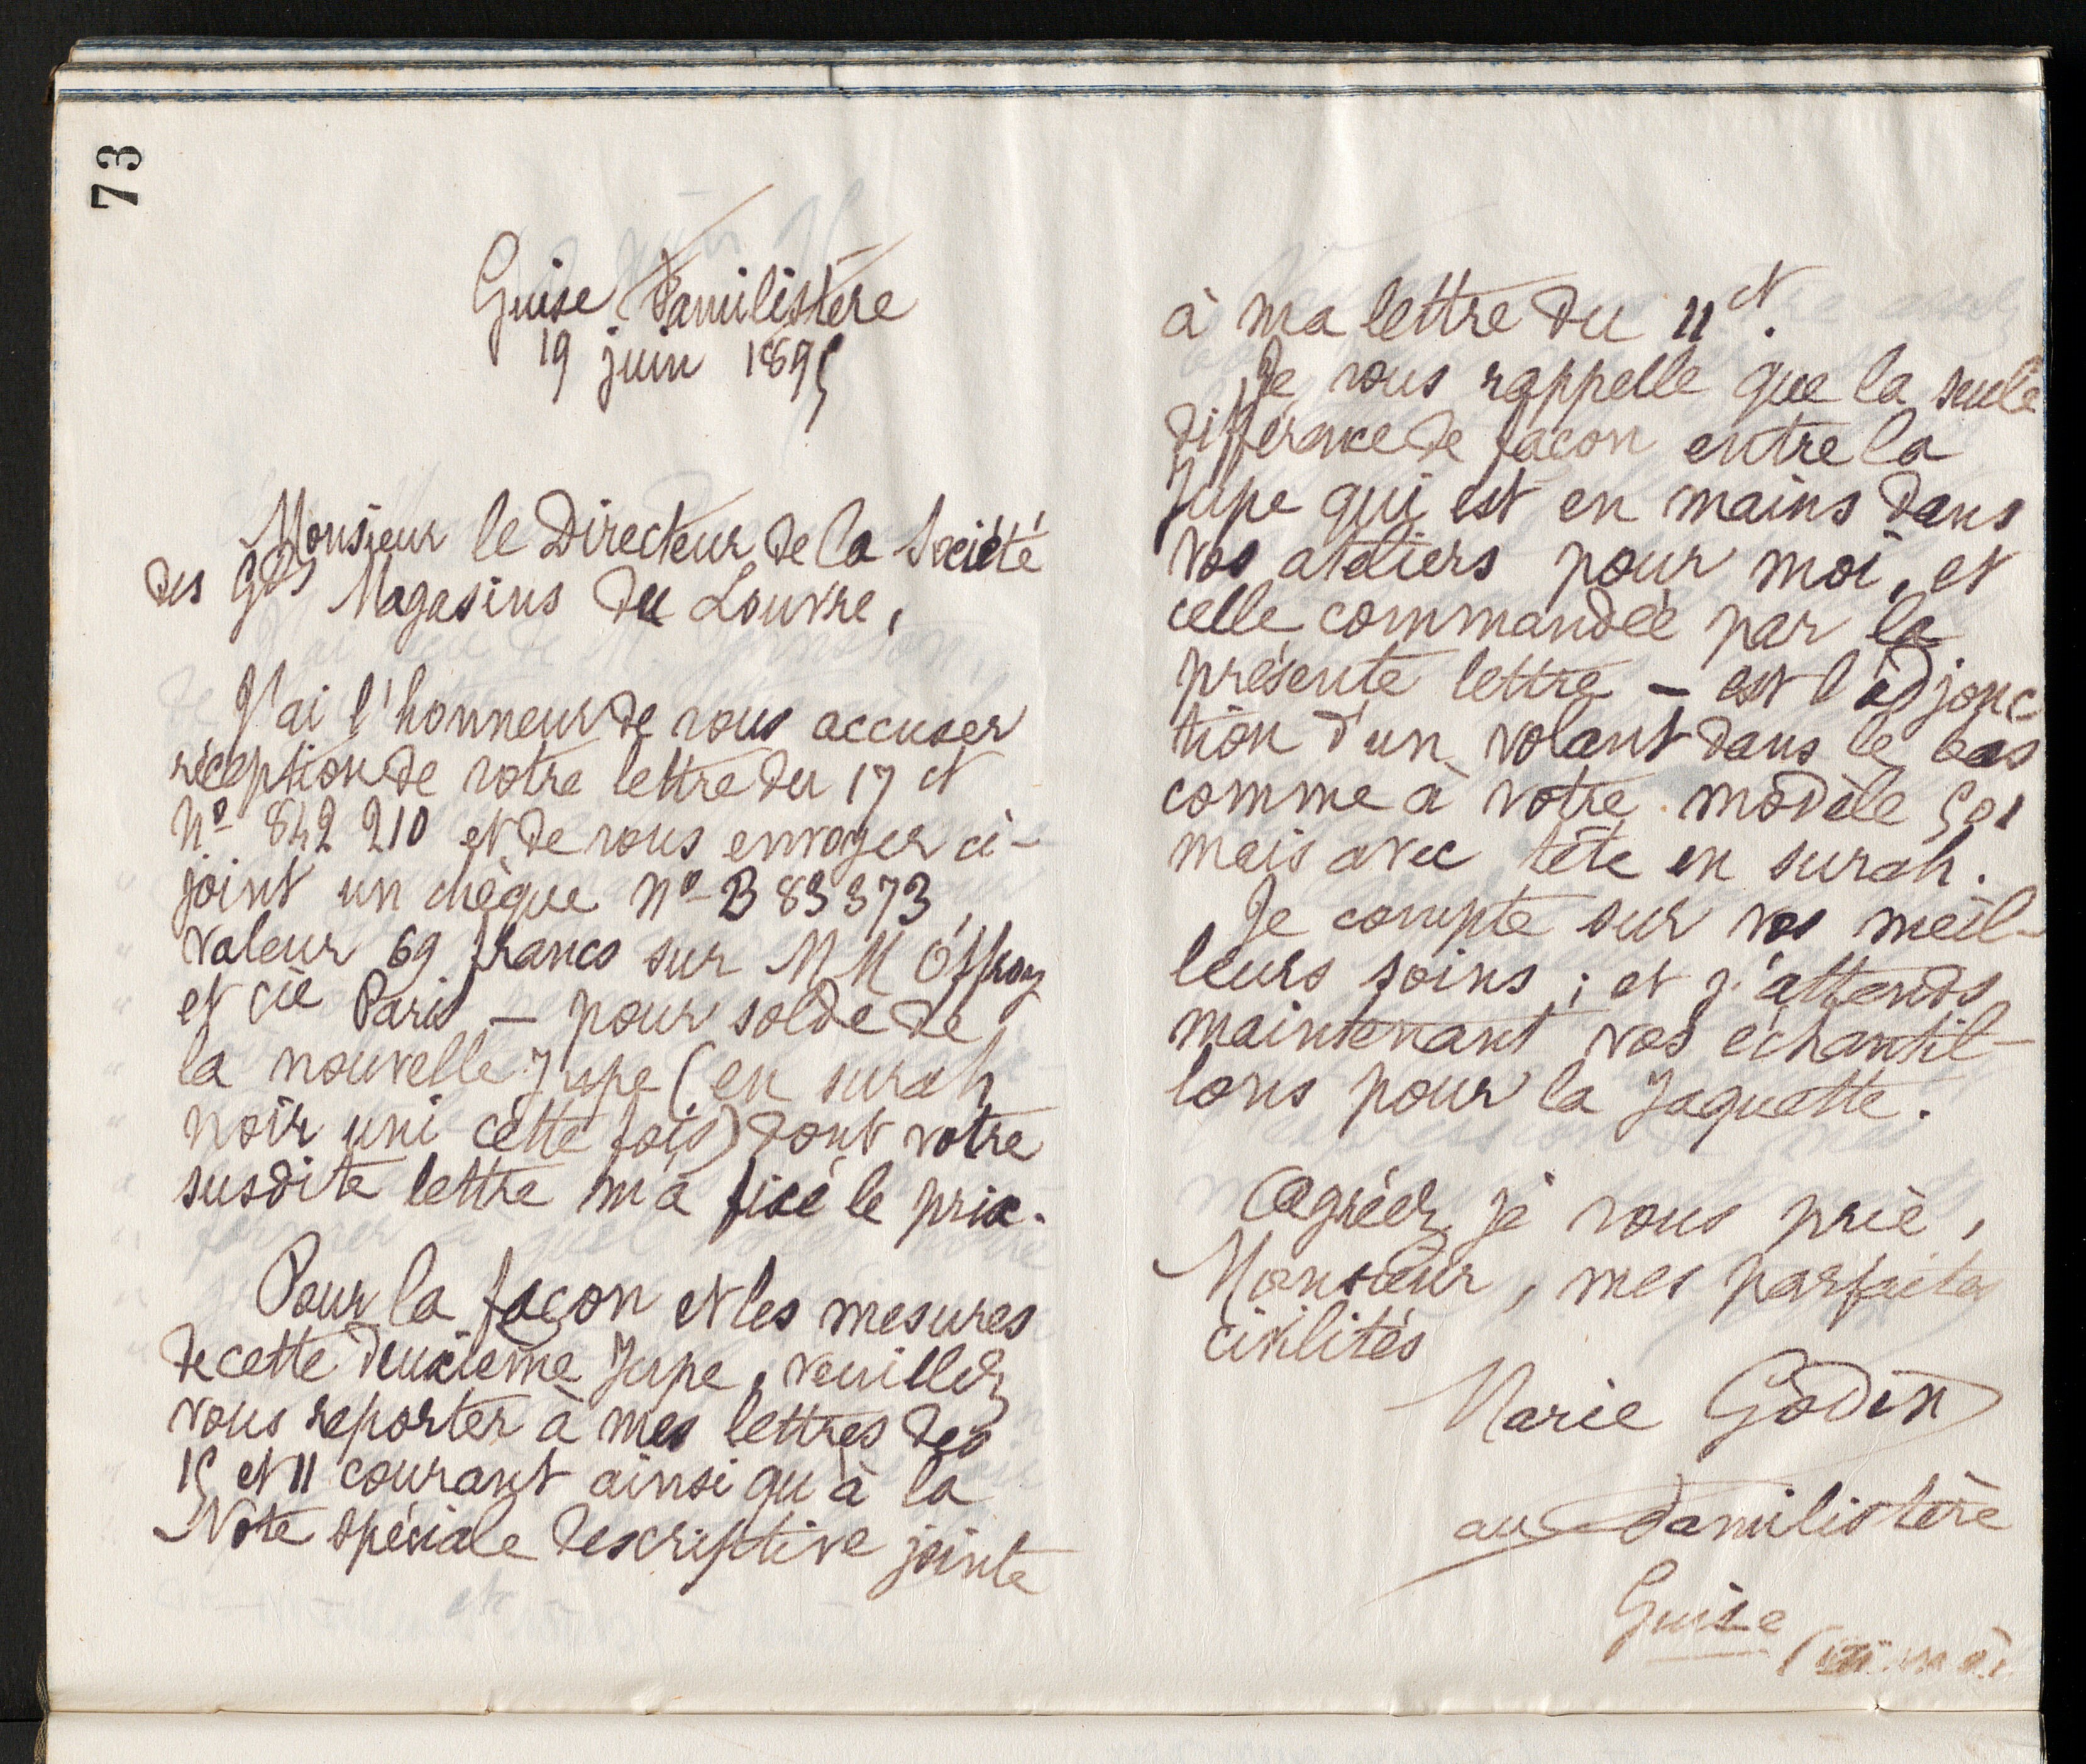 73
Guise Familistère
19 juin 1895
Monsieur le Directeur de la Société
des Gds Magasins du Louvre,
J'ai l'honneur de vous accuser
réception de votre lettre du 17 ct
No 842 210 et de vous envoyer ci-
joint un chèque No B 83373,
valeur 69 francs sur MM Offroy
et cie Paris — pour solde de
la nouvelle Jupe (en surah
noir uni cette fois) dont votre
susdite lettre m'a fixé le prix.
Pour la façon et les mesures
de cette deuxième Jupe, veuillez
vous reporter à mes lettres des
15 et 11 courant ainsi qu'à la
Note spéciale descriptive jointe
à ma lettre du 11 ct.
Je vous rappelle que la seule
différence de façon entre la
Jupe qui est en mains dans
vos ateliers pour moi, et
celle commandée par la
présente lettre — est l'adjonc
tion d'un volant dans le bas
comme à votre modèle 501
mais avec tête en surah.
Je compte sur vos meil-
leurs soins ; et j'attends
maintenant vos échantil-
lons pour la Jaquette.
Agréez, je vous prie,
Monsieur, mes parfaites
civilités
Marie Godin
au Familistère
Guise